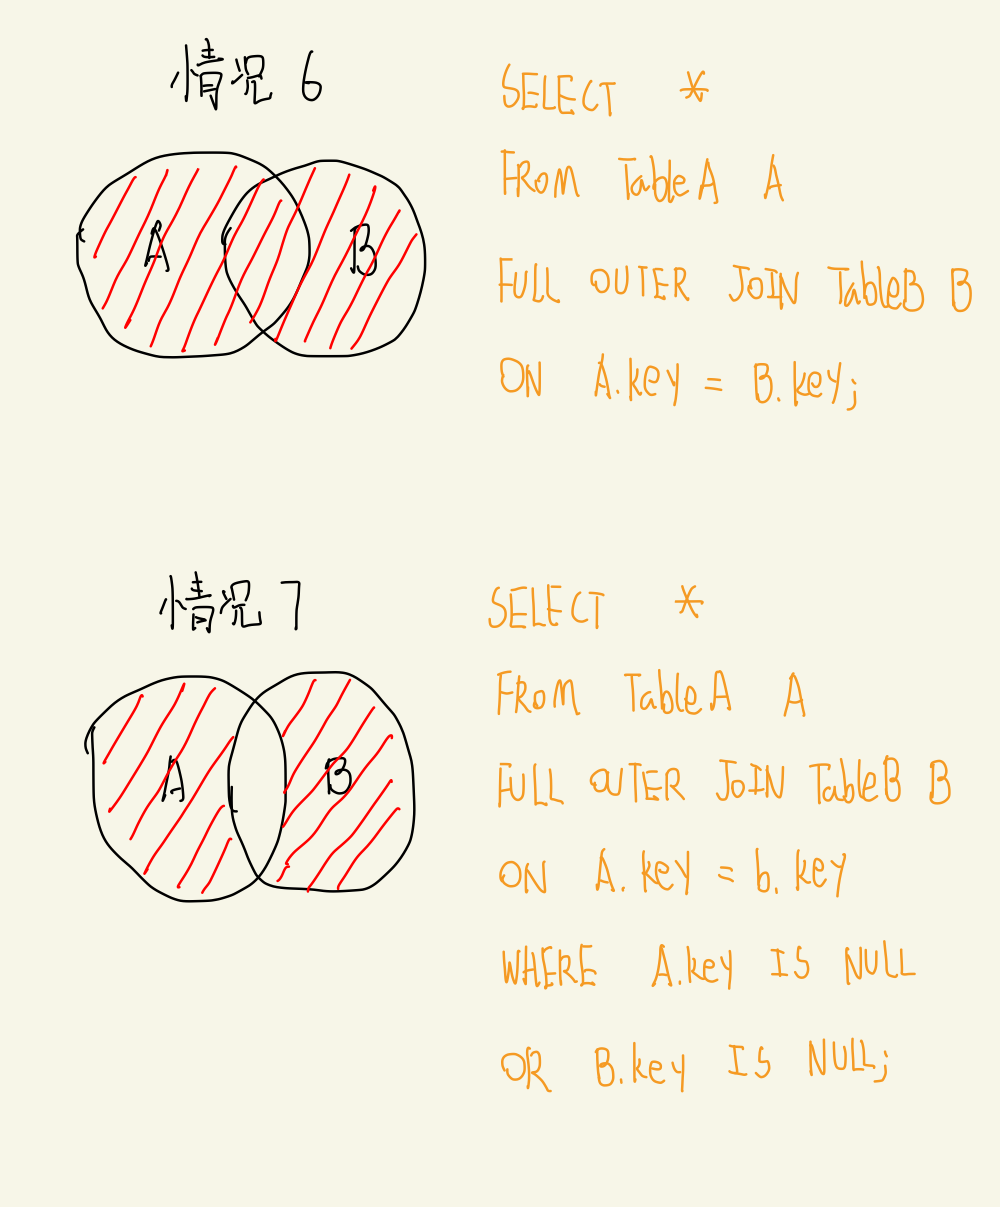 情况 6
SELECT *
FROM TableA A
FULL OUTER JOIN TableB B
ON A.key = B.key;
A B
情况 7
SELECT *
FROM TableA A
FULL OUTER JOIN TableB B
ON A.key = b.key
WHERE A.key IS NULL
OR B.key IS NULL;
A B